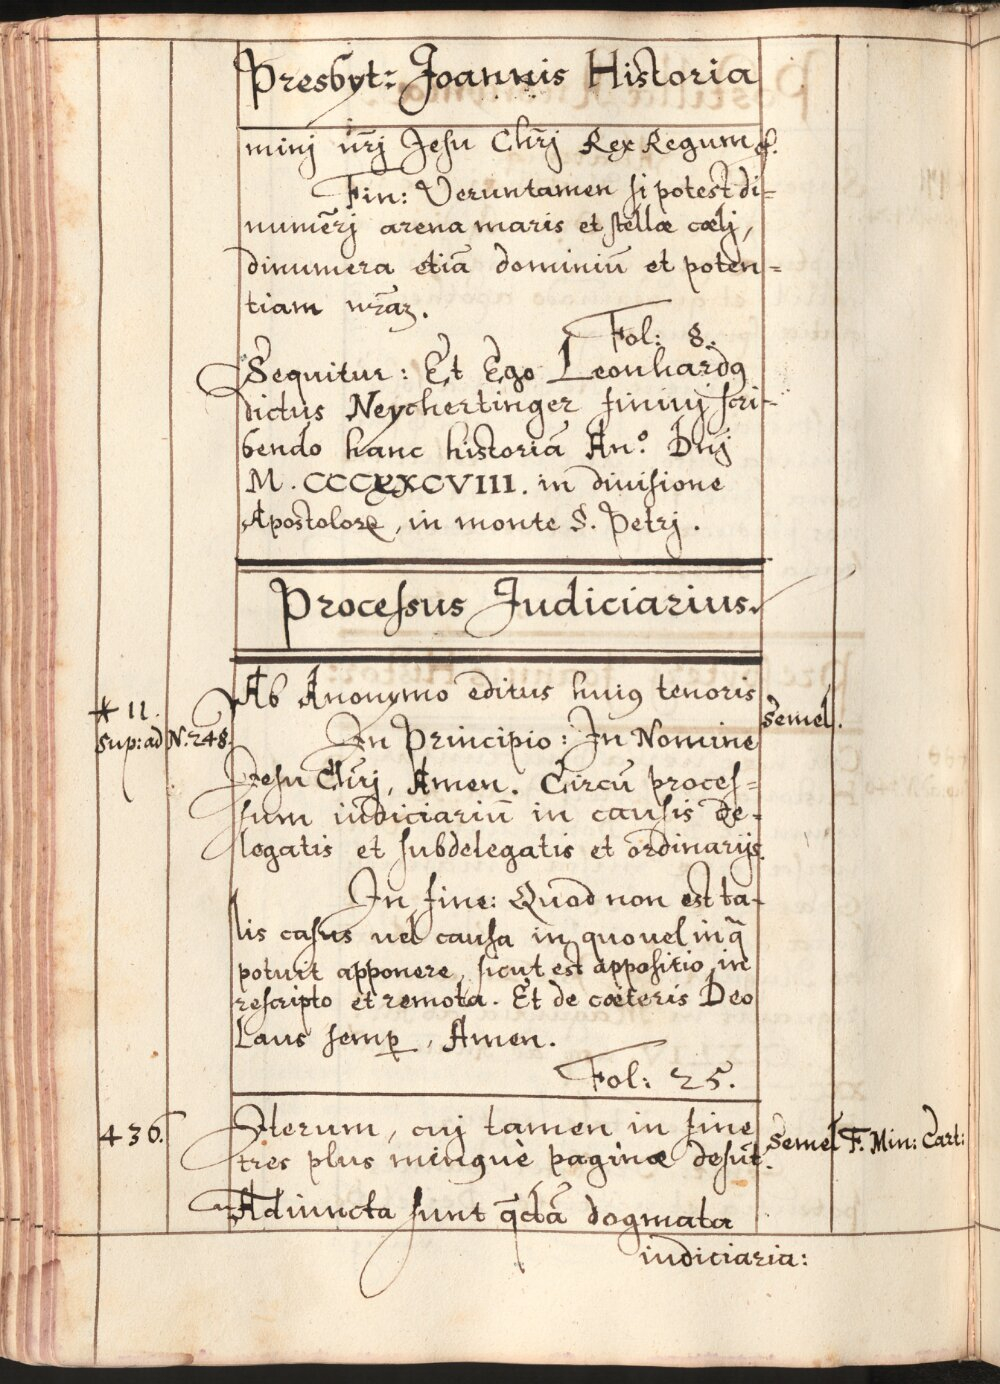 Presbyt: Joannis Historia
minj nr̃j Jesu Chrj̃ Rex Regum &.
Fin: Veruntamen si potest di=
numẽrj arena maris et stellæ cœlj,
dinumera etiã dominiũ et poten=
tiam nr̃aꝫ.
Fol: 8.
Sequitur: Et Ego Leonhardꝰ
dictus Neychertinger finivj scri-
bendo hanc historiã An.º Dnj̃
M. CCCXXCVIII. in divisione
Apostoloꝝ, in monte S. Petrj.
Processus Judiciarius.
Ab Anonymo editus huiꝰ tenoris
* 11.
sup: ad N. 248.
Semel.
In Principio: In Nomine
Jesu Chr̃j, Amen. Circũ proces=
sum iudiciariũ in causis de-
legatis et subdelegatis et ordinarijs.
In fine: Quod non est ta-
lis casus vel causa in quovel inq̃
potuit apponere, sicut est appositio in
rescripto et remota. Et de cæteris Deo
Laus semꝑ, Amen.
Fol: 25.
436. Iterum, cuj tamen in fine Semel F. Min: Cart:
tres plus minꝰquè paginæ desũt.
Adiuncta sunt q̃dã dogmata
iudiciaria: